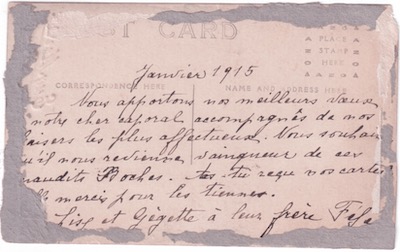 ST CARD
PLACE
STAMP
HERE
Janvier 1915
CORRESPONDENCE HERE
NAME AND ADDRESS HERE
Nous apportons nos meilleurs vœux
notre cher caporal accompagnés de nos
aisers les plus affectueux. Nous souhai
u'il nous revienne vainqueur de ces
audits Boches. As tu reçu nos cartes
merci pour les tiennes.
Lise et Gégette à leur frère